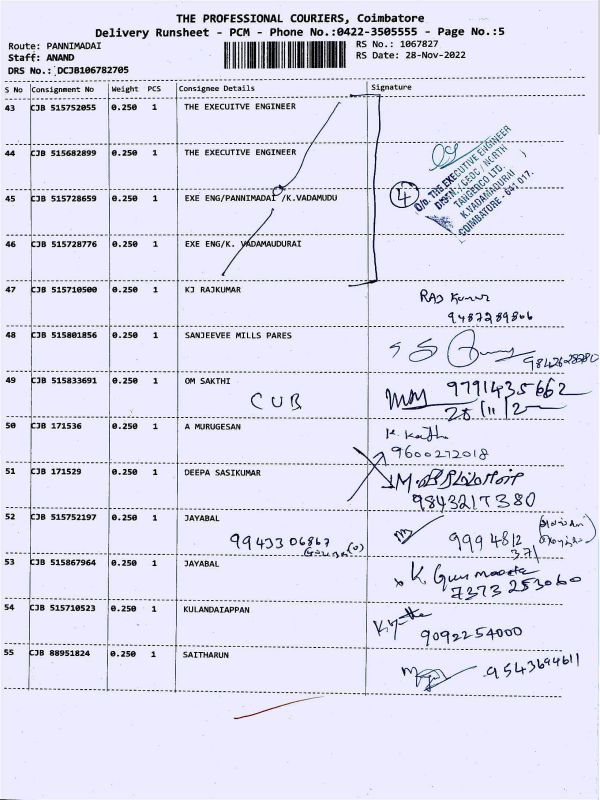 THE PROFESSIONAL COURIERS, Coimbatore
Delivery Runsheet - PCM - Phone No.:0422-3505555 - Page No.:5
Route: PANNIMADAI
RS No.: 1067827
Staff: ANAND
RS Date: 28-Nov-2022
DRS No.: DCJB106782705
S No Consignment No Weight PCS Consignee Details Signature
43 CJB 515752055 0.250 1 THE EXECUITVE ENGINEER
44 CJB 515682899 0.250 1 THE EXECUITIVE ENGINEER
45 CJB 515728659 0.250 1 EXE ENG/PANNIMADAI /K.VADAMUDU
46 CJB 515728776 0.250 1 EXE ENG/K. VADAMAUDURAI
4
O/o. THE EXECUTIVE ENGINEER
DISTN./ CEDC / NORTH
TANGEDCO LTD.
K.VADAMADURAI
COIMBATORE - 641 017.
47 CJB 515710500 0.250 1 KJ RAJKUMAR
Raj Kumar
9487289866
48 CJB 515801856 0.250 1 SANJEEVEE MILLS PARES
49 CJB 515833691 0.250 1 OM SAKTHI
CUB
9791435662
28/11/2
50 CJB 171536 0.250 1 A MURUGESAN
9600272018
51 CJB 171529 0.250 1 DEEPA SASIKUMAR
9843217380
52 CJB 515752197 0.250 1 JAYABAL
9943306867
9994812
371
53 CJB 515867964 0.250 1 JAYABAL
7373253060
54 CJB 515710523 0.250 1 KULANDAIAPPAN
9092254000
55 CJB 88951824 0.250 1 SAITHARUN
9543694611